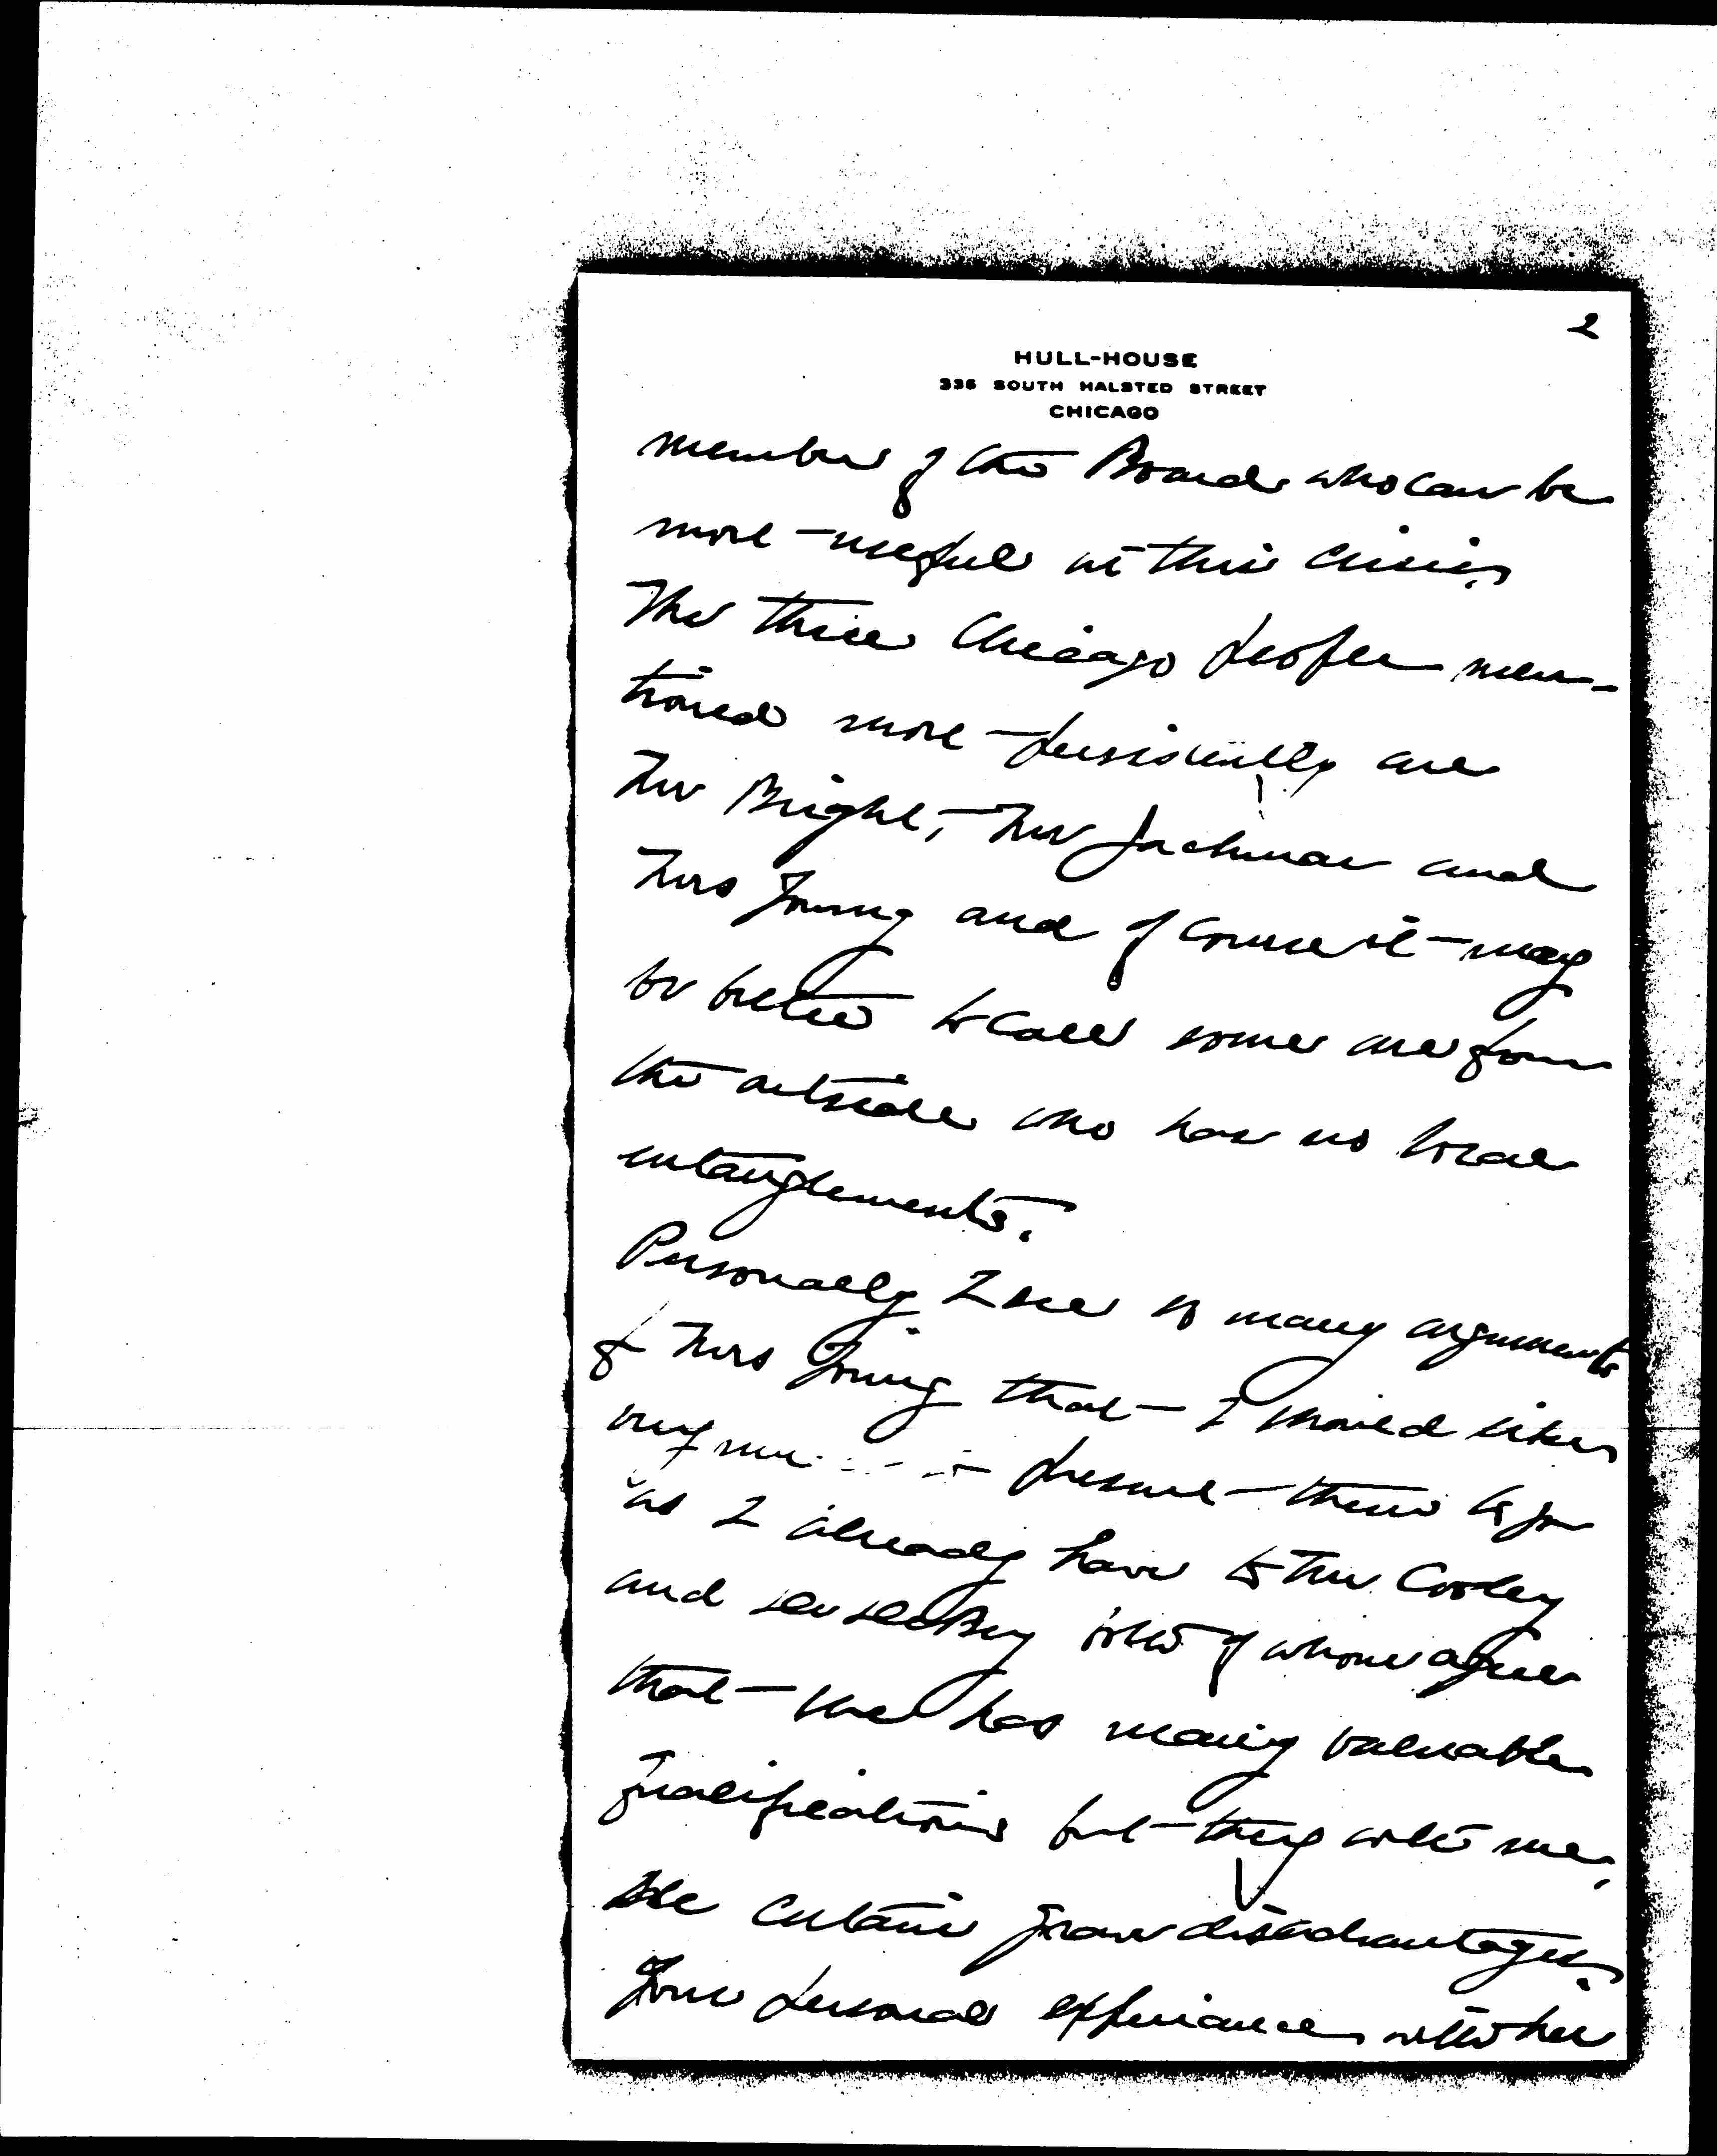 2
HULL-HOUSE
335 SOUTH HALSTED STREET
CHICAGO
member of the Board who can be
more useful in this crisis,
The three Chicago people men-
tioned more persistently are
Mr Bright, Mr Jackman and
Mrs Young and of course it may
be better to call some one from
the outside who has no local
entanglements.
Personally I see so many arguments
f Mrs Young that I should like
very mu to present them to you
as I already have to Mr. Cooley
and both of whom agree
that she has many valuable
qualifications but they with me,
see certain grave disadvantages.
Your personal experience with her